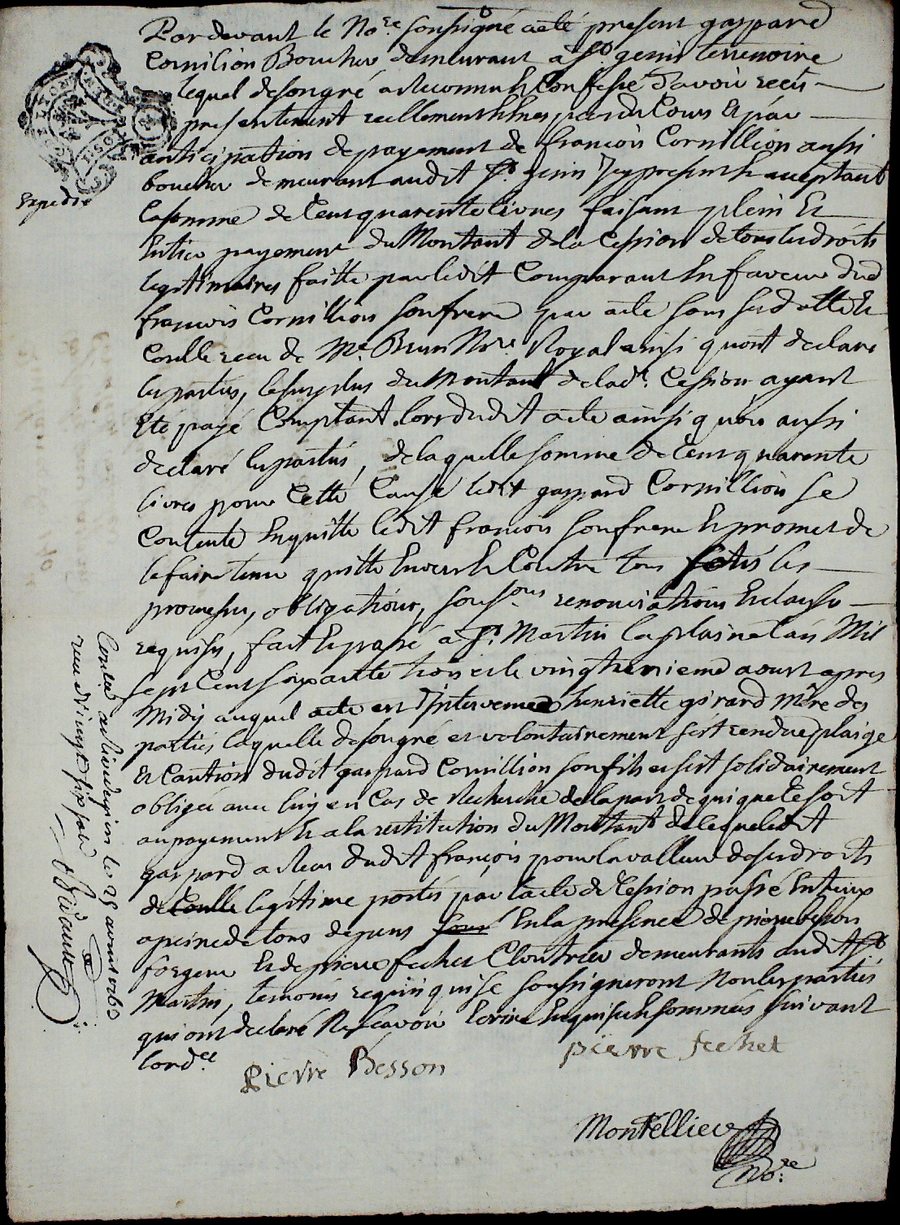 Pardevant le No.re soussigné a eté present gaspard
Cornilion Boucher demeurant a St. genis terrenoire
lequel de son gré a Reconnu & Confessé d'avoir receu
presentement reellement
anticipation de payement de francois Cornillion aussi
boucher demeurant audit St. genis icy present & acceptant
Expedié
la somme de Cent quarente livres faisant plein Et
Entier payement du Montant de la Cession de tous les droits
legitimaires faitte par ledit Comparant En faveur dud
francois Cornillion son frere par acte sous sa datte Et
Coulle receu de Me. Brun No.re Royal ainsi qu'ont declaré
les parties, le surplus du Montant de lad.e Cession ayant
Eté payé Comptant lors dudit acte ainsi qu'ont aussi
declaré les parties, de laquelle somme de Cent quarente
livres pour Cette Cause ledit gaspard Cornillion se
Contente En quitte ledit francois son frere Et promet de
le faire tenir quitte Envers & Contre tous les
promesses, obligations, sous.ons renonciations & clauses
requises, fait & passé a St. Martin la plaine l'an Mil
sept Cent soixante trois et le vingt aoust apres
Midy auquel acte est Intervenue henriette girard mere des
parties laquelle de son gré et volontairement s'est rendue plaige
Et Caution dudit gaspard Cornillion son fils et s'est solidairement
obligée avec luy en Cas de Recherche de la part de qui que Ce soit
au payement & a la restitution du Montant de ce que ledit
gaspard a Receu dudit francois pour la valleur de ses droits
de Coulle legitime portés par l'acte de Cession passé Entreux
a peine de tous depens En la presence de pierre besson
forgeur Et de pierre fechet Cloutrier demeurants audit St.
Martin, temoins requis qui se soussigneront Non les parties
qui ont declaré Ne scavoir Ecrire Enquis & sommés suivant
lord.ce
Pierre Besson
pierre fechet
Montellier
No.re
receu dix sept sols